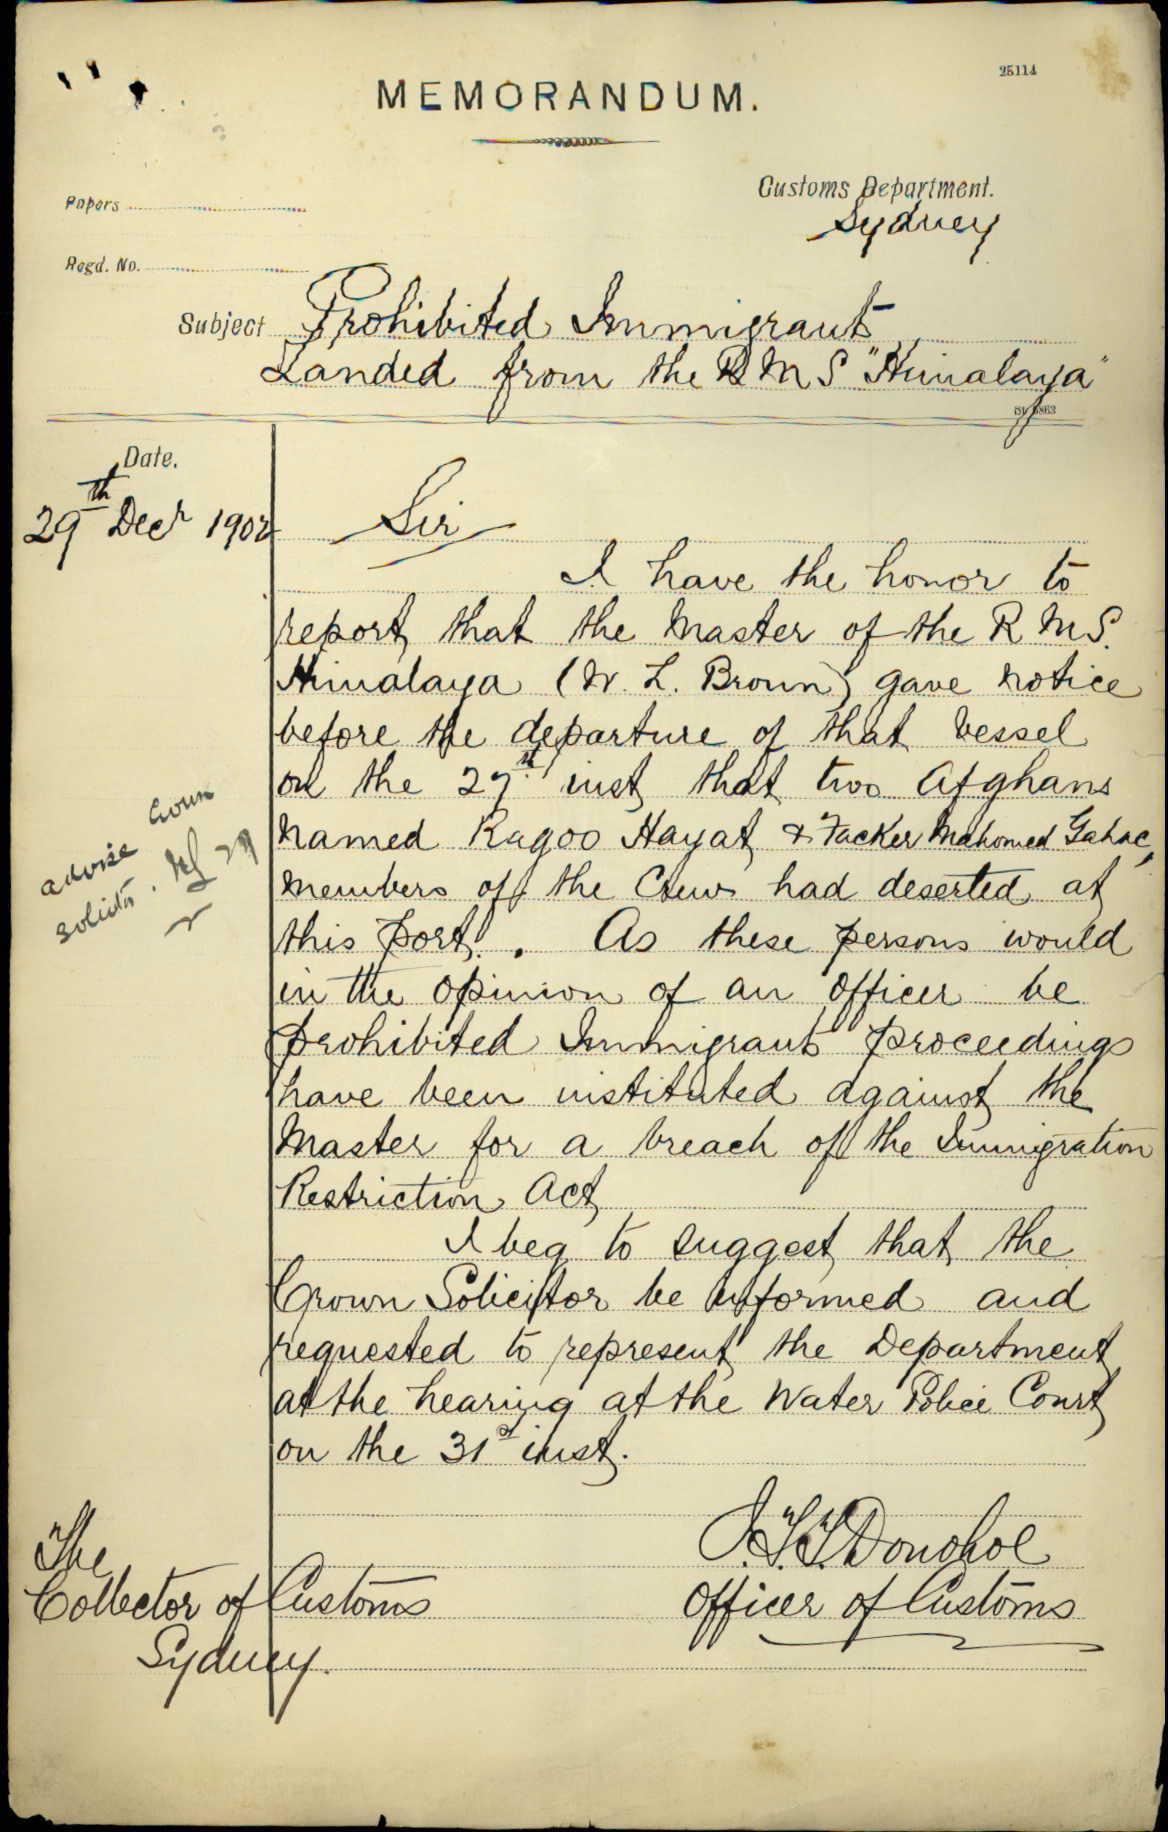 25114
MEMORANDUM.
Customs Department.
Sydney
Papers
Regd. No.
Subject Prohibited Immigrants
Landed from the R M S "Himalaya"
Date.
29th Decr 1902
Sir
I have the honor to
report that the Master of the R M S.
Himalaya (W. L. Broun) gave notice
before the departure of that vessel
on the 27th inst that two Afghans
named Ragoo Hayat & Facker Mahomed Gahac,
members of the Crew had deserted at
this port. As these persons would
in the opinion of an Officer be
prohibited Immigrants proceedings
have been instituted against the
Master for a breach of the Immigration
Restriction Act
I beg to suggest that the
Crown Solicitor be informed and
requested to represent the Department
at the hearing at the Water Police Court
on the 31st inst.
advise Crown
solicitr.
29
J. T. T. Donohoe
Officer of Customs
The
Collector of Customs
Sydney.